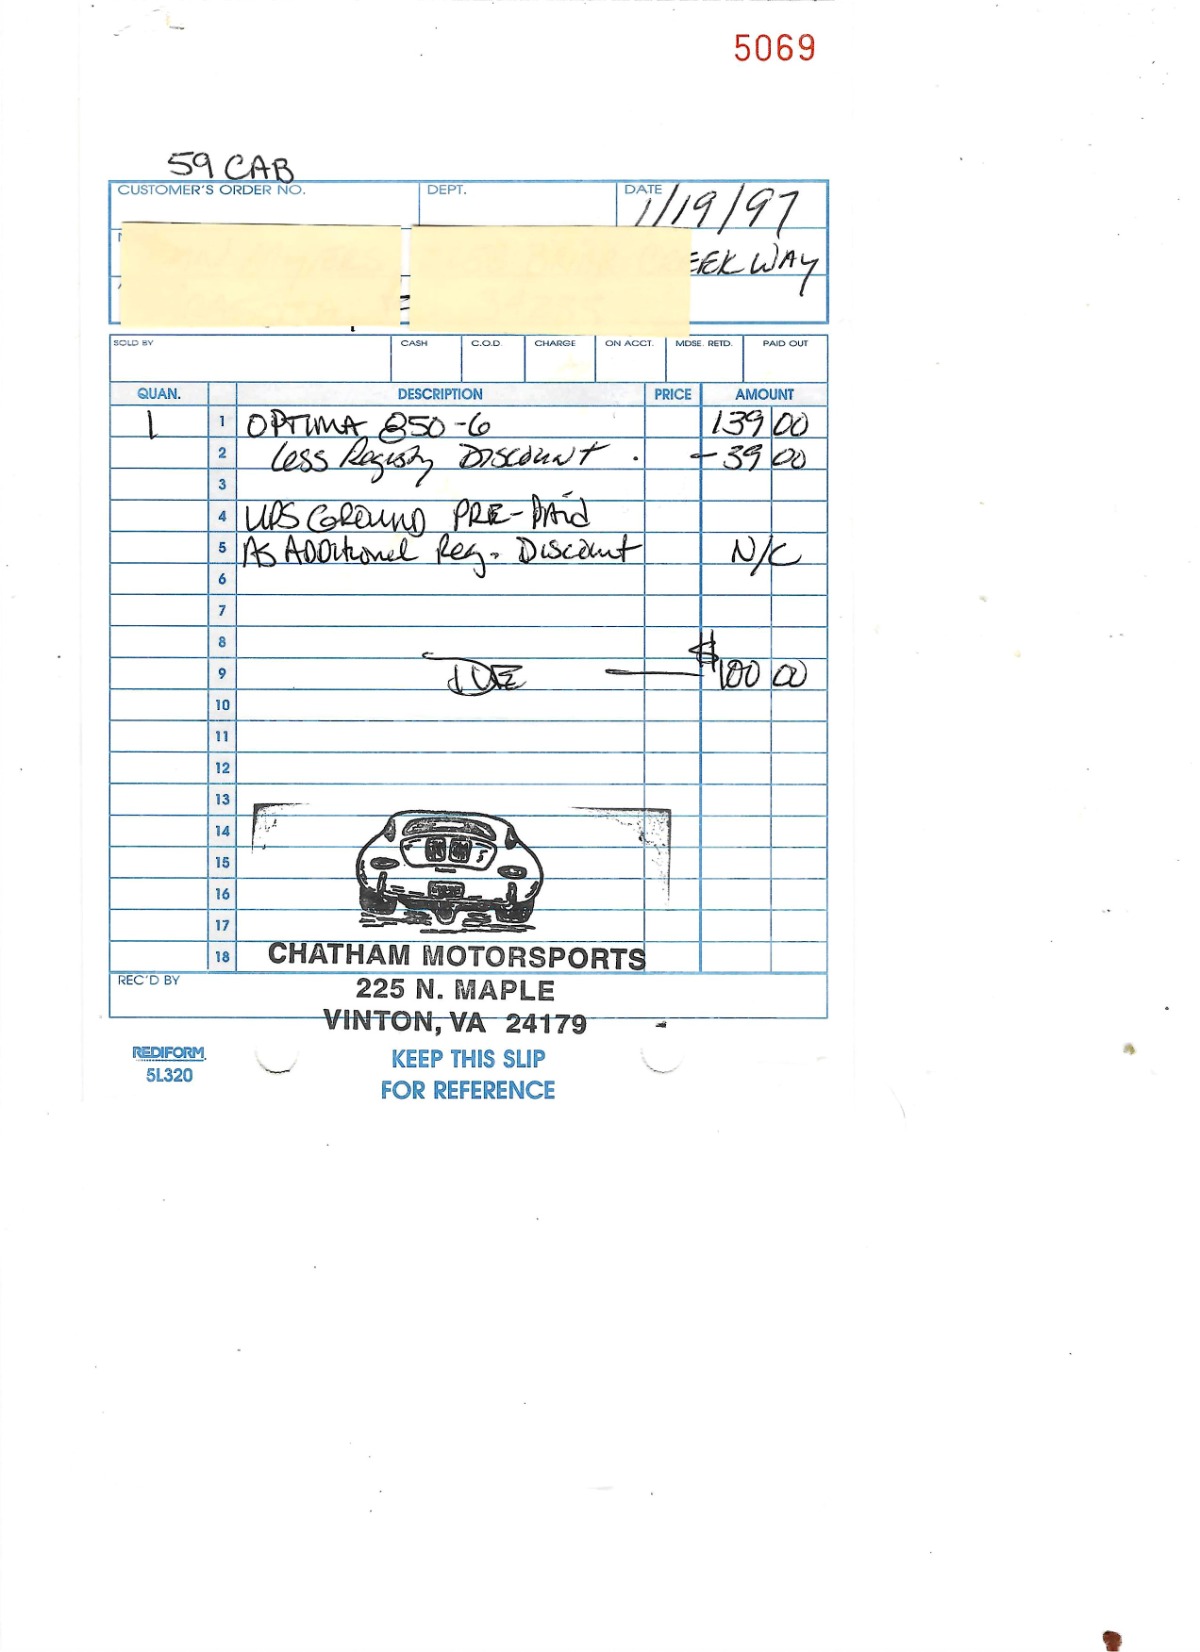 5069
59 CAB
CUSTOMER'S ORDER NO. DEPT. DATE 1/19/97
WAY
SOLD BY CASH C.O.D. CHARGE ON ACCT. MDSE. RETD. PAID OUT
QUAN. DESCRIPTION PRICE AMOUNT
1 1 OPTIMA 850-6 139 00
2 Less Registry Discount - 39 00
3
4 UPS GROUND PRE-PAid
5 AS ADDitional Reg. Discount N/C
6
7
8
9 DUE — $100 00
10
11
12
13
14
15
16
17
18 CHATHAM MOTORSPORTS
REC'D BY 225 N. MAPLE
VINTON, VA 24179
REDIFORM KEEP THIS SLIP
5L320 FOR REFERENCE